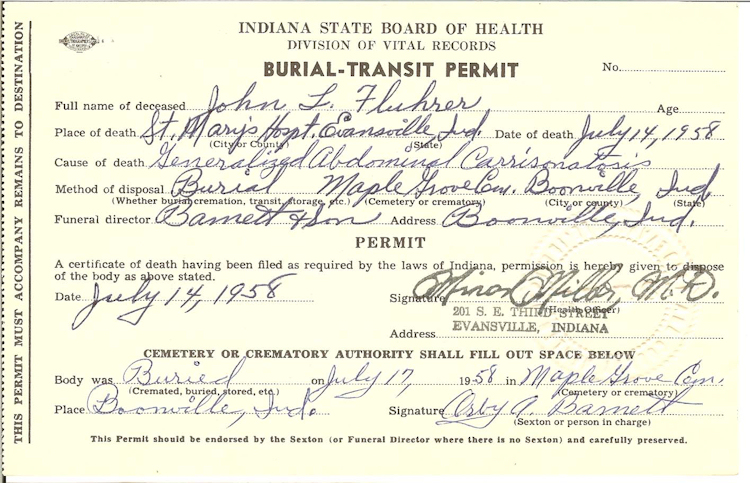 THIS PERMIT MUST ACCOMPANY REMAINS TO DESTINATION
INDIANA STATE BOARD OF HEALTH
DIVISION OF VITAL RECORDS
BURIAL-TRANSIT PERMIT No.
Full name of deceased John L. Fluhrer Age
Place of death St. Mary's Hospt. Evansville, Ind. Date of death July 14, 1958
(City or County) (State)
Cause of death Generalized Abdominal Carrisonatosis
Method of disposal Burial Maple Grove Cem. Boonville, Ind.
(Whether burial cremation, transit, storage, etc.) (Cemetery or crematory) (City or county) (State)
Funeral director Barnett & Son Address Boonville, Ind.
PERMIT
A certificate of death having been filed as required by the laws of Indiana, permission is hereby given to dispose
of the body as above stated.
Date July 14, 1958 Signature Minor Miller, M.D.
(Health Officer)
201 S. E. THIRD STREET
Address EVANSVILLE, INDIANA
CEMETERY OR CREMATORY AUTHORITY SHALL FILL OUT SPACE BELOW
Body was Buried on July 17, 1958 in Maple Grove Cem.
(Cremated, buried, stored, etc.) (Cemetery or crematory)
Place Boonville, Ind. Signature Orby A. Barnett
(Sexton or person in charge)
This Permit should be endorsed by the Sexton (or Funeral Director where there is no Sexton) and carefully preserved.